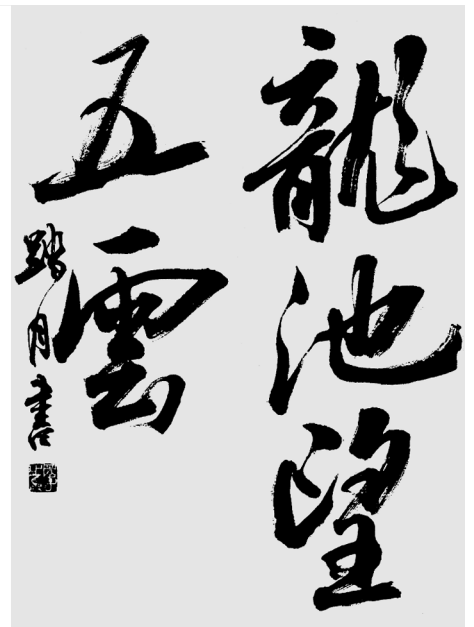 龍池望
五雲
踏月書